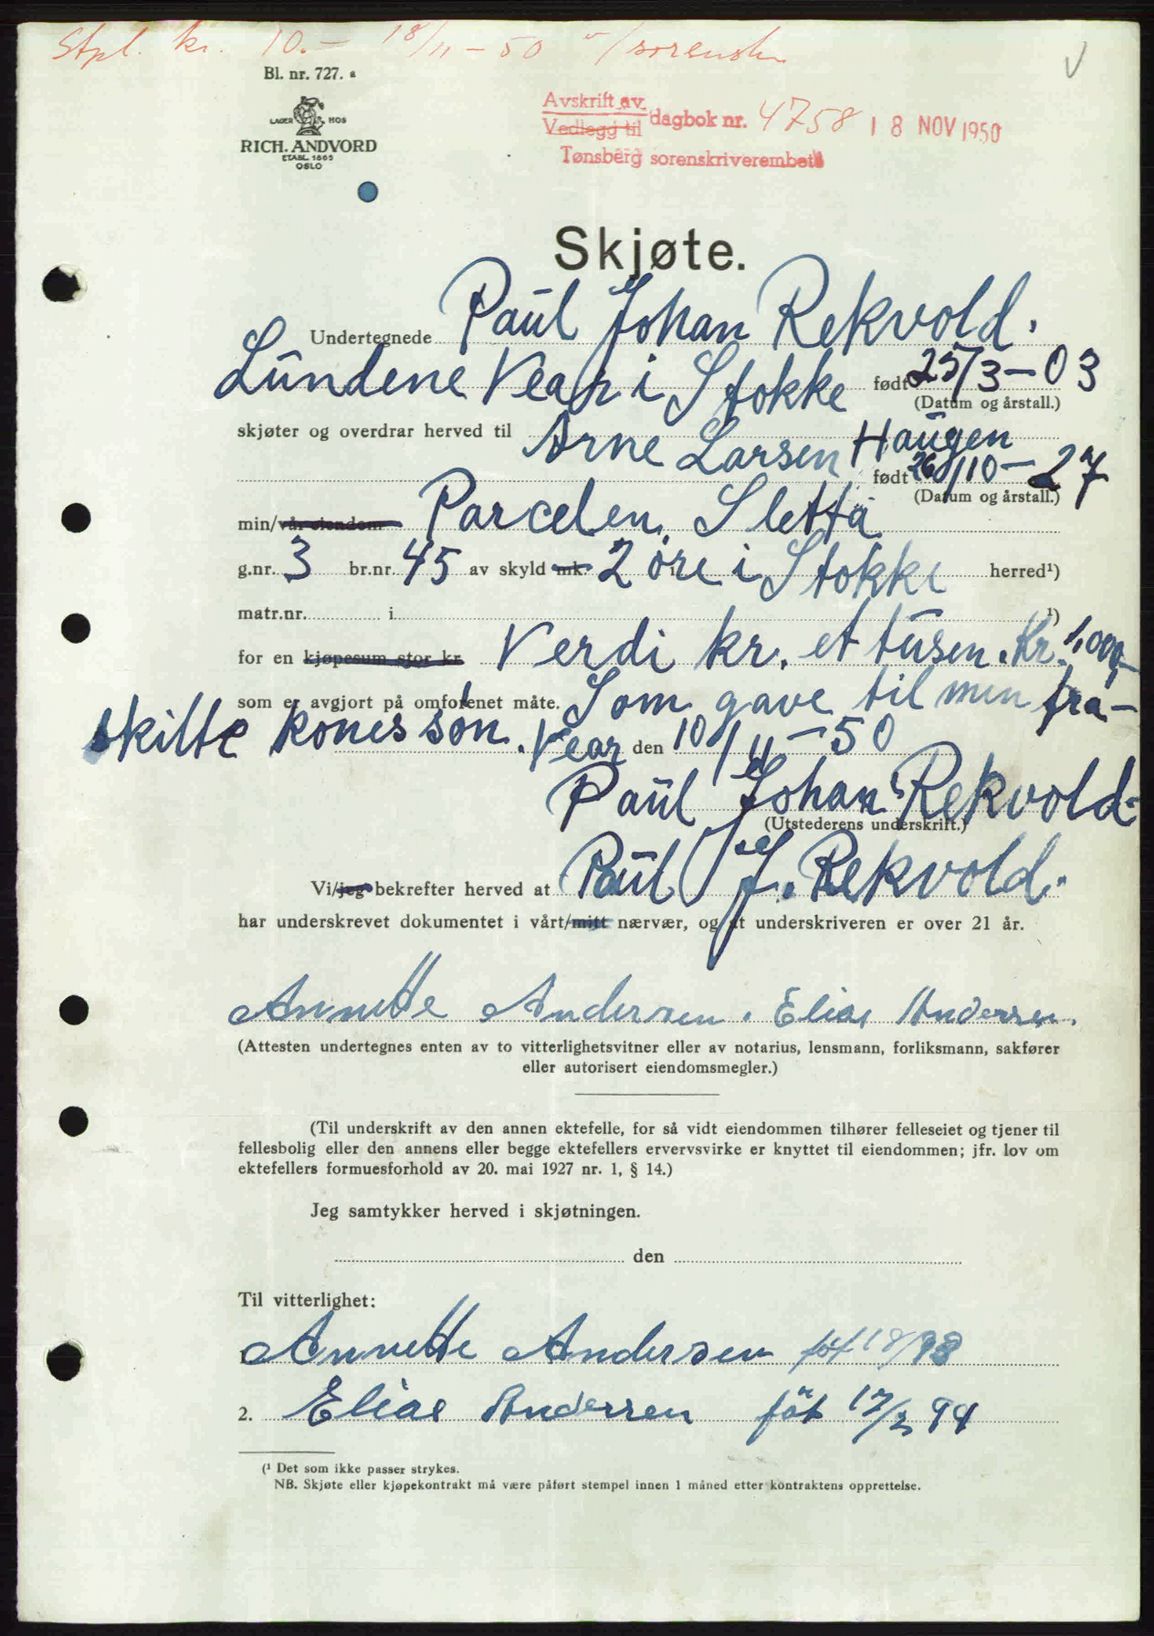 Stpl. kr. 10.- 18/11-50
Bl. nr. 727. a
Avskrift av
Vedlegg til dagbok nr. 4758 18 NOV 1950
Tønsberg sorenskriverembete
LAGER HOS
RICH. ANDVORD
ETABL. 1865
OSLO
Skjøte.
Undertegnede Paul Johan Rekvold.
Lundene Vear i Stokke født 25/3-03
(Datum og årstall.)
skjøter og overdrar herved til Arne Larsen Haugen
født 26/10-27
(Datum og årstall.)
min/vår eiendom Parcelen Sletta
g.nr. 3 br.nr. 45 av skyld mk. 2 øre i Stokke herred¹)
matr.nr. i ¹)
for en kjøpesum stor kr. Verdi kr. et tusen. Kr. 1,000,-
som er avgjort på omforenet måte. Som gave til min fra-
skilte kones søn. Vear den 10/11-50
Paul Johan Rekvold.
(Utstederens underskrift.)
Vi/jeg bekrefter herved at Paul J. Rekvold.
har underskrevet dokumentet i vårt/mitt nærvær, og at underskriveren er over 21 år.
Annette Andersen. Elias Andersen.
(Attesten undertegnes enten av to vitterlighetsvitner eller av notarius, lensmann, forliksmann, sakfører
eller autorisert eiendomsmegler.)
(Til underskrift av den annen ektefelle, for så vidt eiendommen tilhører felleseiet og tjener til
fellesbolig eller den annens eller begge ektefellers ervervsvirke er knyttet til eiendommen; jfr. lov om
ektefellers formuesforhold av 20. mai 1927 nr. 1, § 14.)
Jeg samtykker herved i skjøtningen.
den
Til vitterlighet:
Annette Andersen
2. Elias Andersen føt 17/2 94
(¹ Det som ikke passer strykes.
NB. Skjøte eller kjøpekontrakt må være påført stempel innen 1 måned etter kontraktens opprettelse.